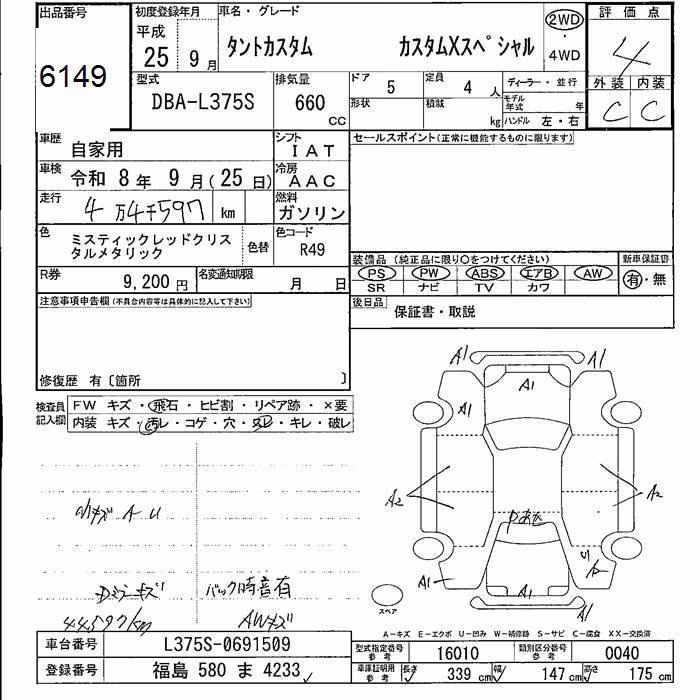 出品番号
6149
初度登録年月
平成
25 9月
車名・グレード
タントカスタム カスタムXスペシャル
2WD
4WD
評価点
4
外装 内装
C C
型式
DBA-L375S
排気量
660 CC
ドア 5
定員 4人
形状
積載 kg
ディーラー・並行
モデル年式 年
ハンドル 左・右
車歴 自家用
シフト IAT
車検 令和 8年 9月(25日)
冷房 AAC
走行 4万4千597 km
燃料 ガソリン
色 ミスティックレッドクリスタルメタリック
色替
色コード R49
R券 9,200円
名変通知期限 月 日
セールスポイント(正常に機能するものに限ります)
装備品(純正品に限り○をつけてください)
PS PW ABS エアB AW
SR ナビ TV カワ
新車保証書
有・無
後日品 保証書・取説
注意事項申告欄(不具合内容等は具体的に記入して下さい)
修復歴 有〔箇所 〕
検査員記入欄
FW キズ・飛石・ヒビ割・リペア跡・×要
内装 キズ・汚レ・コゲ・穴・スレ・キレ・破レ
小キズ A U
Dミラーキズ
バック時音有
44597km
AWキズ
A1 A1
A1
A1
A2 A2
U1
A2
A1
A1
A1
スペア
A-キズ E-エクボ U-凹み W-補修跡 S-サビ C-腐食 XX-交換済
車台番号 L375S-0691509
登録番号 福島 580 ま 4233
型式指定番号 参考 16010
類別区分番号 参考 0040
車庫証明用 参考 長さ 339 cm 幅 147 cm 高さ 175 cm